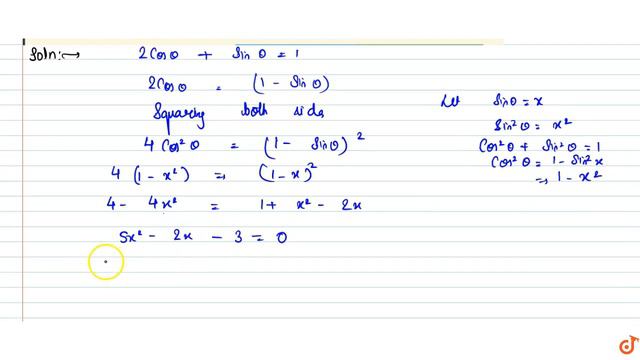 Soln:→ 2Cosθ + Sinθ = 1
2Cosθ = (1 - Sinθ)
Squaring both side
4Cos²θ = (1 - Sinθ)²
4(1 - x²) ⇒ (1 - x)²
4 - 4x² = 1 + x² - 2x
5x² - 2x - 3 = 0
Let Sinθ = x
Sin²θ = x²
Cos²θ + Sin²θ = 1
Cos²θ = 1 - Sin²x
⇒ 1 - x²